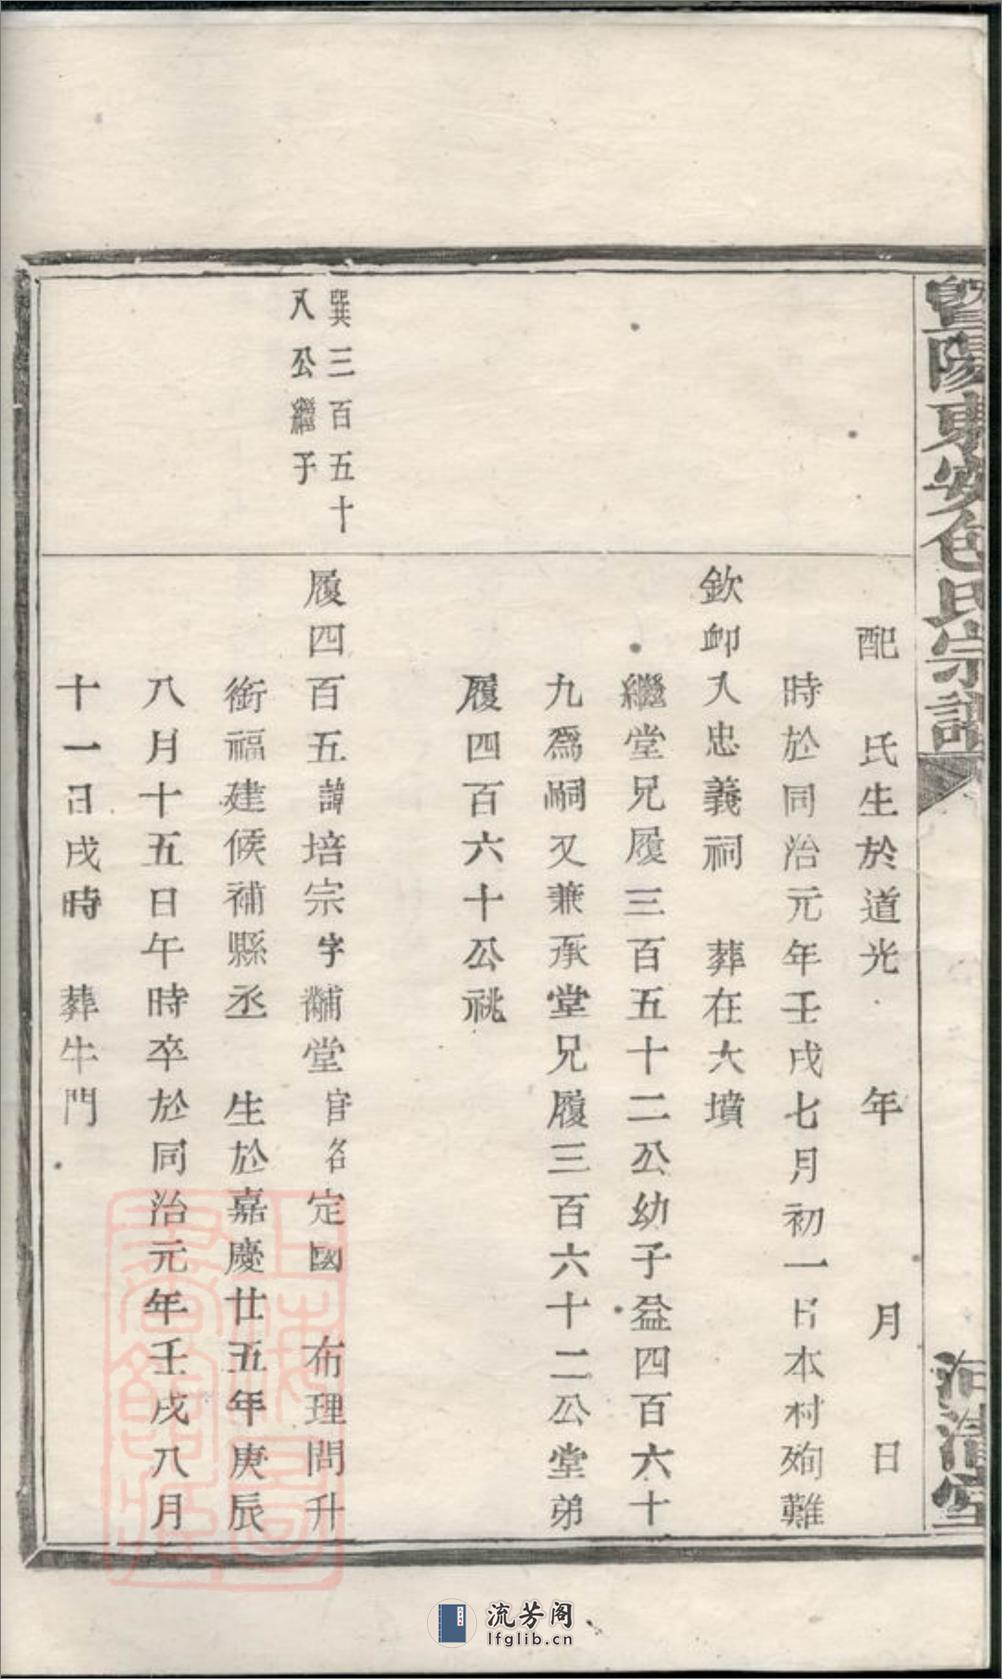 暨陽東安包氏宗譜
清堂
配　氏生於道光　年　月　日
時於同治元年壬戌七月初一日本村殉難
欽卹入忠義祠　葬在大墳
繼堂兄履三百五十二公幼子益四百六十
九爲嗣又兼承堂兄履三百六十二公堂弟
履四百六十公祧
巽三百五十
八公繼子
履四百五諱培宗字黼堂官名定國　布理問升
銜福建候補縣丞　生於嘉慶廿五年庚辰
八月十五日午時卒於同治元年壬戌八月
十一日戌時　葬牛門
上海圖書館藏
流芳阁
lfglib.cn